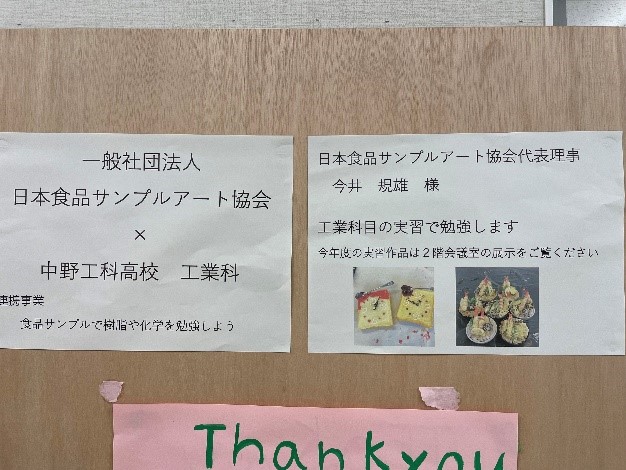 一般社団法人
日本食品サンプルアート協会
×
中野工科高校 工業科
連携事業
食品サンプルで樹脂や化学を勉強しよう
日本食品サンプルアート協会代表理事
今井 規雄 様
工業科目の実習で勉強します
今年度の実習作品は２階会議室の展示をご覧ください
Thank you